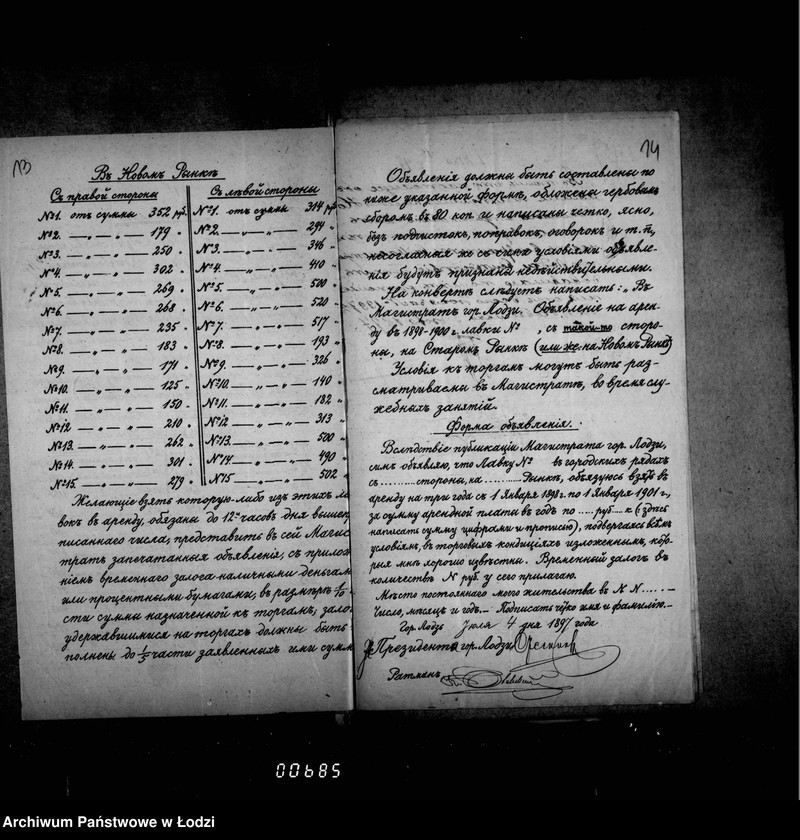 13
Въ Новомъ Рынкѣ
Съ правой стороны
№1. отъ суммы 352 руб.
№2. — „ — „ — 179 „
№3. — „ — „ — 250 „
№4. — „ — „ — 302 „
№5. — „ — „ — 269 „
№6. — „ — „ — 268 „
№7. — „ — „ — 235 „
№8. — „ — „ — 183 „
№9. — „ — „ — 171 „
№10. — „ — „ — 125 „
№11. — „ — „ — 150 „
№12 — „ — „ — 210 „
№13. — „ — „ — 262 „
№14. — „ — „ — 301 „
№15. — „ — „ — 279 „
Съ лѣвой стороны
№1. отъ суммы 314 руб
№2. — „ — „ — 294 „
№3. — „ — „ — 346 „
№4. — „ — „ — 410 „
№5. — „ — „ — 500 „
№6. — „ — „ — 520 „
№7. — „ — „ — 517 „
№8. — „ — „ — 193 „
№9. — „ — „ — 326 „
№10. — „ — „ — 140 „
№11. — „ — „ — 182 „
№12 — „ — „ — 313 „
№13. — „ — „ — 500 „
№14 — „ — „ — 490 „
№15 — „ — „ — 502 „
Желающіе взять которую-либо изъ этихъ ла
вокъ въ аренду, обязаны до 12ти часовъ дня вышеп
писаннаго числа, представить въ сей Магис
тратъ запечатанныя объявленія, съ прилож
ніемъ временнаго залога наличными деньгам
или процентными бумагами, въ размѣрѣ 1/10
сти суммы назначенной къ торгамъ; зало
удержавшимися на торгахъ должны быть
полнены до 1/5 части заявленныхъ ими сумм
14
Объявленія должны быть составлены по
ниже указанной формѣ, обложены гербовымъ
сборомъ въ 80 коп и написаны четко, ясно,
безъ подчистокъ, поправокъ, оговорокъ и т. п.,
несогласныя же съ сими условіями объявле-
нія будутъ признаны недѣйствительными.
На конвертѣ слѣдуетъ написать: „Въ
Магистратъ гор. Лодзи. Объявленіе на арен-
ду въ 1898-1900 г. лавки № , съ такой-то сторо-
ны, на Старомъ Рынкѣ (или же на Новомъ Рынкѣ)
Условія къ торгамъ могутъ быть раз-
сматриваемы въ Магистратѣ, во время слу-
жебныхъ занятій.
Форма объявленія.
Вслѣдствіе публикаціи Магистрата гор. Лодзи,
симъ объявляю, что Лавку № въ городскихъ рядахъ
съ ........ стороны, на ......... Рынкѣ, обязуюсь взять въ
аренду на три года съ 1 Января 1898 г. по 1 Января 1901 г.,
за сумму арендной платы въ годъ по ..... руб ..... к (здѣсь
написать сумму цифрами и прописью), подвергаясь всѣмъ
условіямъ, въ торговыхъ кондиціяхъ изложеннымъ, кото-
рыя мнѣ хорошо извѣстны. Временный залогъ въ
количествѣ N руб. у сего прилагаю.
Мѣсто постояннаго моего жительства въ N N ..... —
Число, мѣсяцъ и годъ. — Подписать четко имя и фамилію. —
Гор. Лодзь Іюля 4 дня 1897 года
Президентъ гор. Лодзи
Ратманъ
00685
Archiwum Państwowe w Łodzi